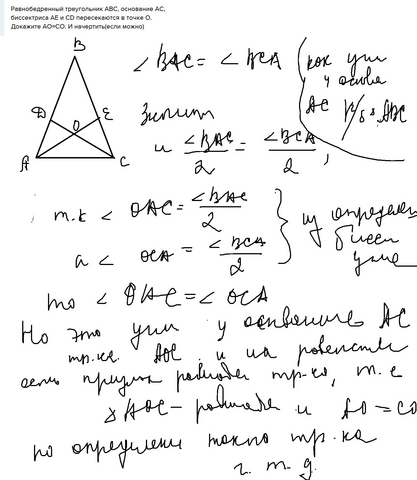 Равнобедренный треугольник ABC, основание AC,
биссектриса AE и CD пересекаются в точке O.
Докажите AO=CO. И начертить(если можно)
B
D
E
O
A
C
∠ BAC = ∠ BCA
как угл
у основ
AC р/б ABC
Значит
и ∠BAC/2 = ∠BCA/2 ,
т.к ∠ OAC = ∠BAC/2
а ∠ OCA = ∠BCA/2
из определен
биссек
угла
то ∠ OAC = ∠ OCA
Но это угли у основание AC
тр-ка AOC и их равенство
есть признак равнобед тр-ка, т.е
△ AOC - равнобед и AO = CO
по определени такого тр-ка
ч.т.д.